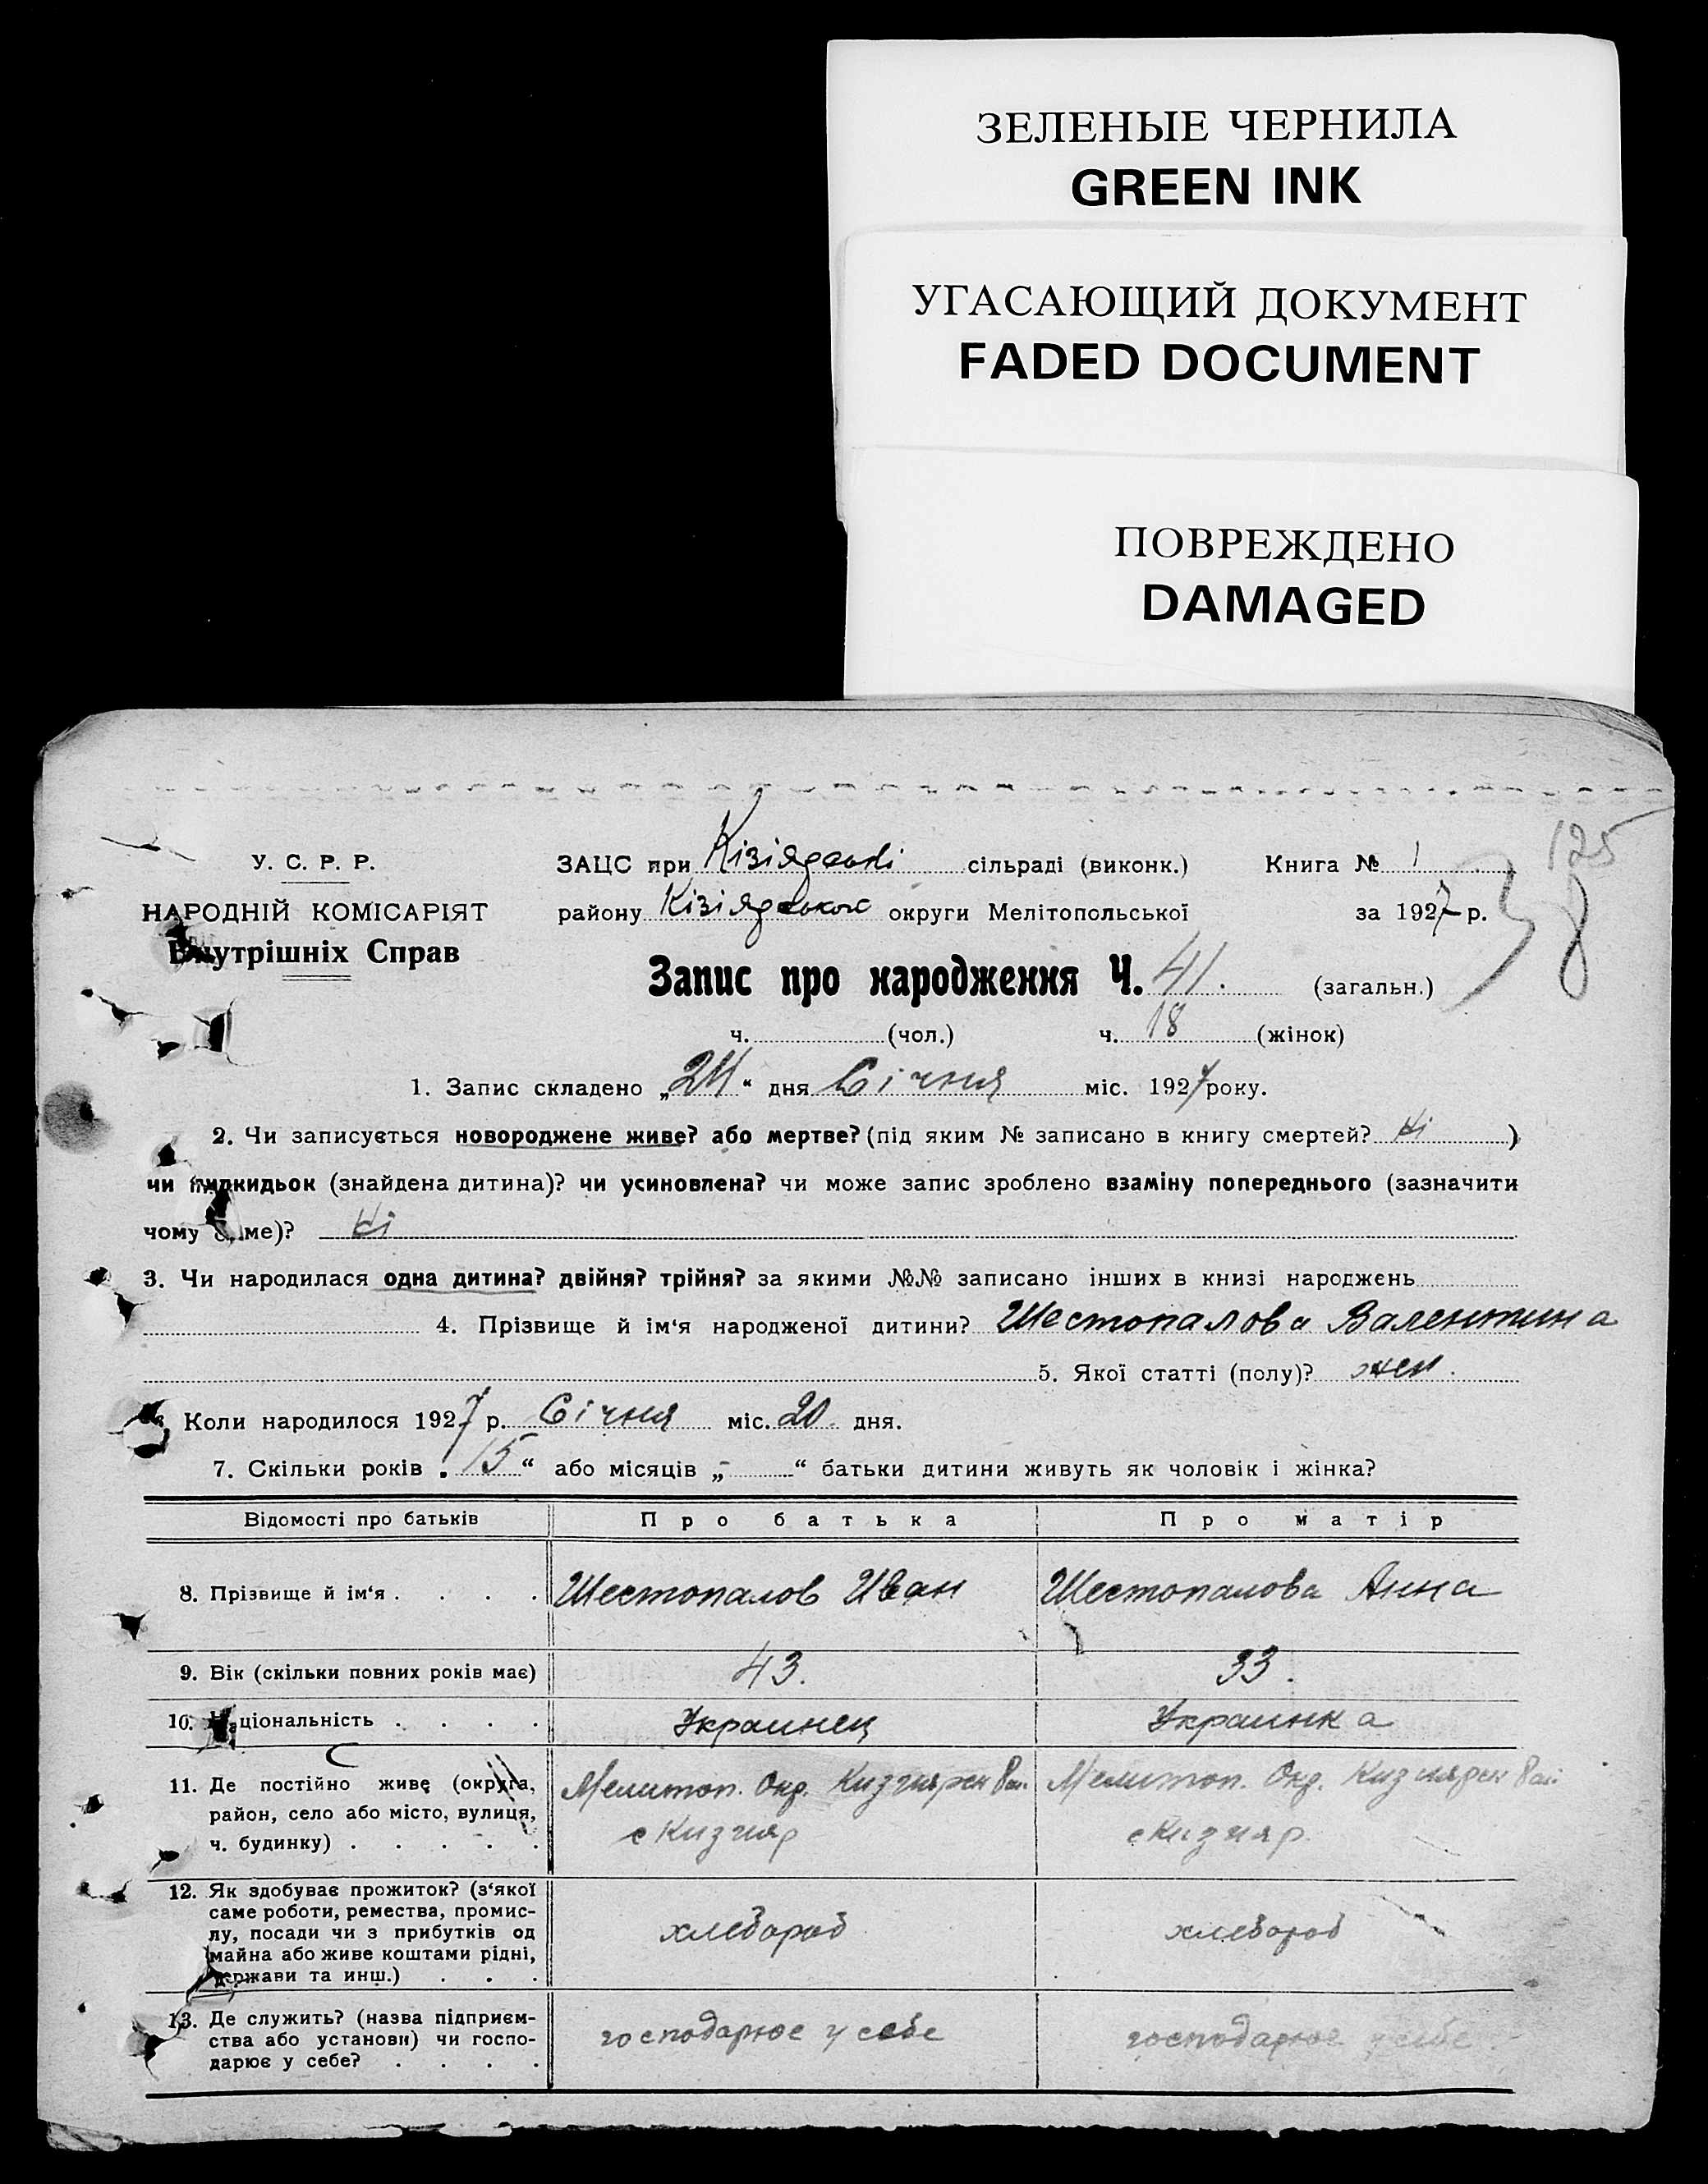 ЗЕЛЕНЫЕ ЧЕРНИЛА
GREEN INK
УГАСАЮЩИЙ ДОКУМЕНТ
FADED DOCUMENT
ПОВРЕЖДЕНО
DAMAGED
125
8
У. С. Р. Р.
НАРОДНІЙ КОМІСАРІЯТ
Внутрішніх Справ
ЗАЦС при сільраді (виконк.) Книга № 1
району округи Мелітопольської за 1927 р.
Запис про народження Ч. 41. (загальн.)
ч. (чол.) ч. 18 (жінок)
1. Запис складено „24“ дня Січня міс. 1927 року.
2. Чи записується новороджене живе? або мертве? (під яким № записано в книгу смертей? Ні )
чи підкидьок (знайдена дитина)? чи усиновлена? чи може запис зроблено взаміну попереднього (зазначити
чому ме)? Ні
3. Чи народилася одна дитина? двійня? трійня? за якими №№ записано інших в книзі народжень
4. Прізвище й ім‘я народженої дитини? Шестопалова Валентина
5. Якої статті (полу)? жен.
Коли народилося 1927 р. Січня міс. 20 дня.
7. Скільки років „15“ або місяців „-“ батьки дитини живуть як чоловік і жінка?
Відомості про батьків Про батька Про матір
8. Прізвище й ім‘я . . . . Шестопалов Иван Шестопалова Анна
9. Вік (скільки повних років має) 43. 33.
10. Національність . . . . Украинец Украинка
11. Де постійно живе (округа,
район, село або місто, вулиця,
ч. будинку) . . . . .
Мелитоп. Окр. Кизиярск Рай.
с Кизияр
Мелитоп. Окр. Кизиярск Рай.
с Кизияр.
12. Як здобуває прожиток? (з‘якої
саме роботи, ремества, промис-
лу, посади чи з прибутків од
майна або живе коштами рідні,
держави та инш.) . . .
хлебороб
хлебороб
13. Де служить? (назва підприєм-
ства або установи) чи госпо-
дарює у себе? . . . .
господарює у себе
господарює у себе